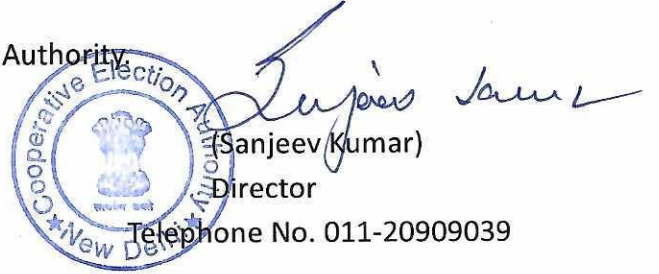 Authority.
Cooperative Election Authority
★ New Delhi ★
(Sanjeev Kumar)
Director
Telephone No. 011-20909039